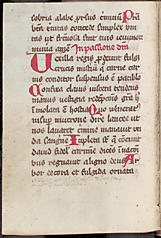 sobria a labe prorsus criminum. Presta
beata trinitas concede simplex uni
tas ut fructuosa sint tuis ieiunior
munera amen In passione domini
Vexilla regis prodeunt fulget
crucis misterium quo carne carnis
conditor suspensus est patibulo
Confixa clavis viscera tendens
manus vestigia redemptionis gratia hic
immolata est hostia Quo vulneratus
insuper mucrone diro lancee ut
nos lavaret crimine manavit unda
sanguine Impleta sunt que concinit
david fideli carmine dicens in nacio
nibus regnavit a ligno deus Ar
bor decora et fulgida ornata